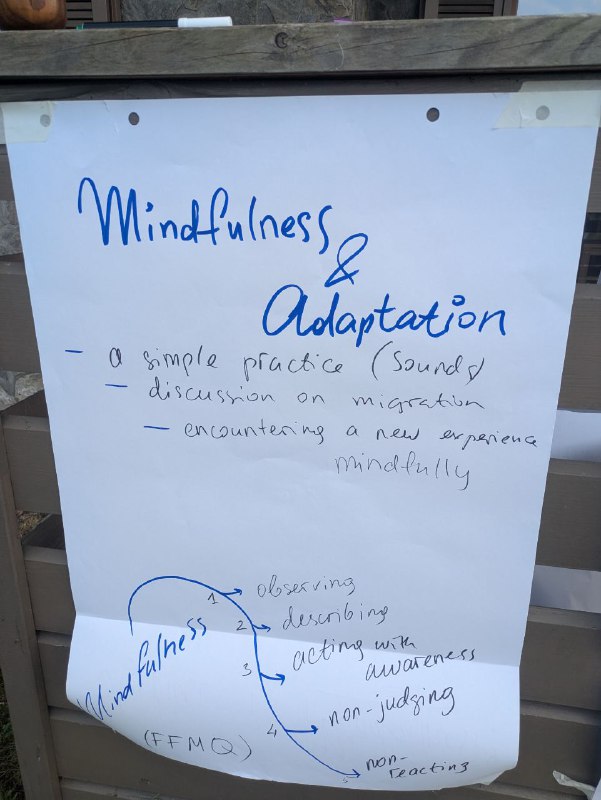 Mindfulness
&
Adaptation
– a simple practice (sounds)
– discussion on migration
– encountering a new experience
mindfully
Mindfulness
(FFMQ)
1 → observing
2 → describing
3 → acting with
awareness
4 → non-judging
5 → non-
reacting